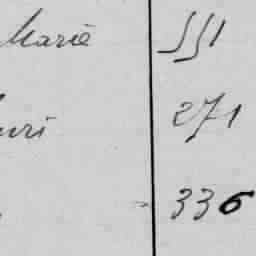 Marie 551
271
336